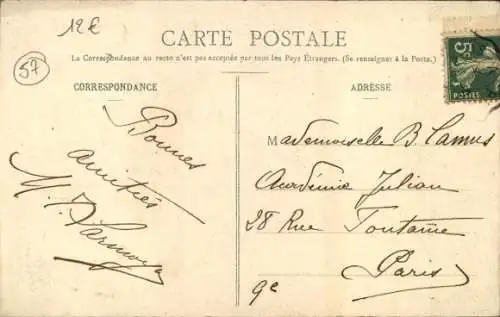 12€
57
CARTE POSTALE
La Correspondance au recto n'est pas acceptée par tous les Pays Étrangers. (Se renseigner à la Poste.)
CORRESPONDANCE
Bonnes
amitiés
ADRESSE
Mademoiselle B. Camus
Académie Julian
28 Rue Fontaine
Paris
9e
5c
POSTES